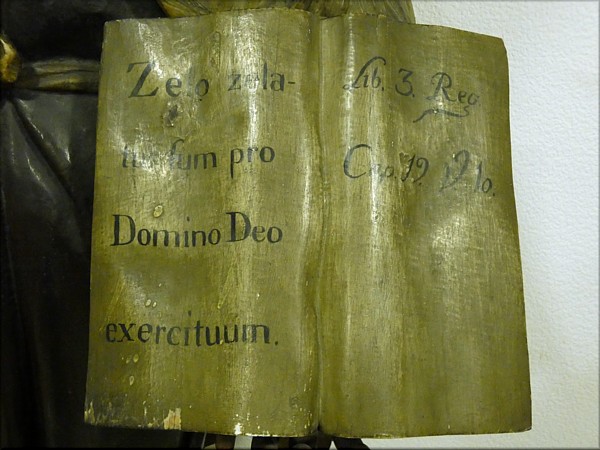 Zelo zela-
tus sum pro
Domino Deo
exercituum.
Lib. 3. Reg
Cap. 19. V 10.